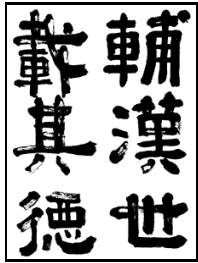 輔漢世
載其德